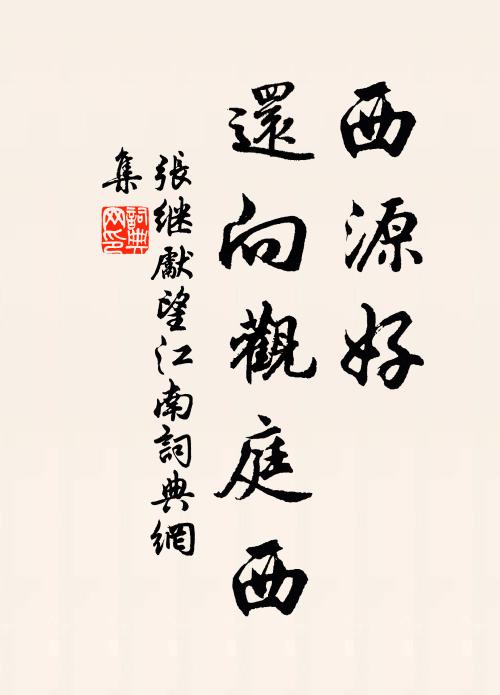 西源好
還向觀庭西
張继獻望江南詞典網
集
詞典網印